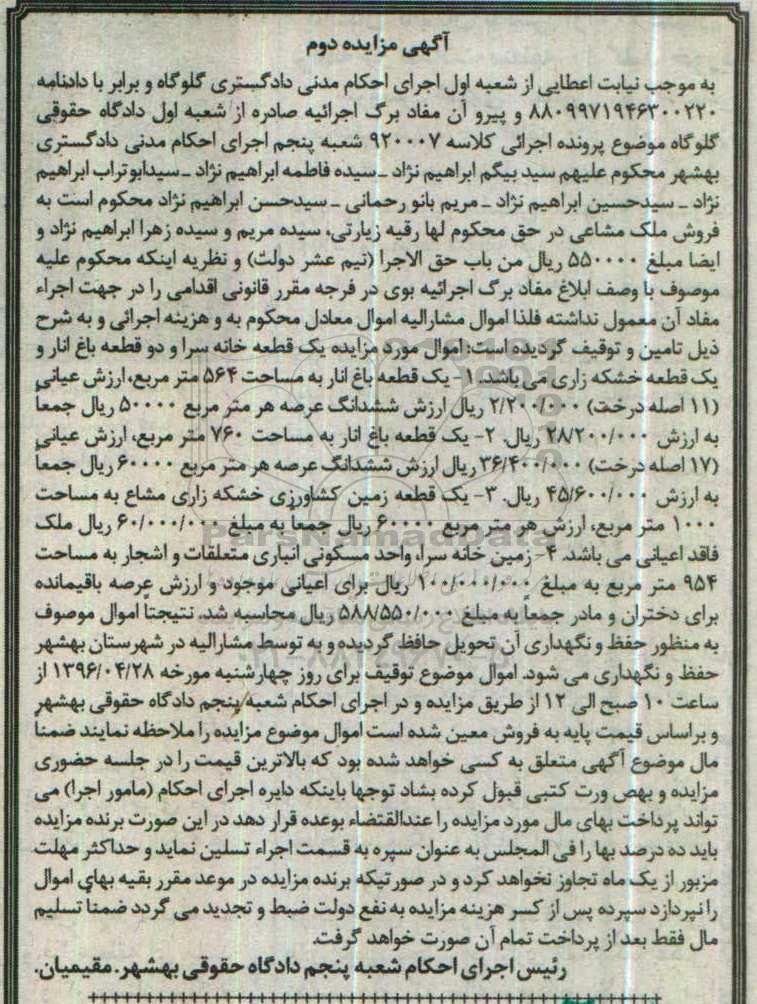 آگهی مزایده دوم
به موجب نیابت اعطایی از شعبه اول اجرای احکام مدنی دادگستری گلوگاه و برابر با دادنامه
۸۸۰۹۹۷۱۹۴۶۳۰۰۲۲۰ و پیرو آن مفاد برگ اجرائیه صادره از شعبه اول دادگاه حقوقی
گلوگاه موضوع پرونده اجرائی کلاسه ۹۲۰۰۰۷ شعبه پنجم اجرای احکام مدنی دادگستری
بهشهر محکوم علیهم سید بیگم ابراهیم نژاد ـ سیده فاطمه ابراهیم نژاد ـ سیدابوتراب ابراهیم
نژاد ـ سیدحسین ابراهیم نژاد ـ مریم بانو رحمانی ـ سیدحسن ابراهیم نژاد محکوم است به
فروش ملک مشاعی در حق محکوم لها رقیه زیارتی، سیده مریم و سیده زهرا ابراهیم نژاد و
ایضا مبلغ ۵۵۰۰۰۰ ریال من باب حق الاجرا (نیم عشر دولت) و نظریه اینکه محکوم علیه
موصوف با وصف ابلاغ مفاد برگ اجرائیه بوی در فرجه مقرر قانونی اقدامی را در جهت اجراء
مفاد آن معمول نداشته فلذا اموال مشارالیه اموال معادل محکوم به و هزینه اجرائی و به شرح
ذیل تامین و توقیف گردیده است: اموال مورد مزایده یک قطعه خانه سرا و دو قطعه باغ انار و
یک قطعه خشکه زاری می باشد. ۱- یک قطعه باغ انار به مساحت ۵۶۴ متر مربع، ارزش عیانی
(۱۱ اصله درخت) ۲/۲۰۰/۰۰۰ ریال ارزش ششدانگ عرصه هر متر مربع ۵۰۰۰۰ ریال جمعاً
به ارزش ۲۸/۲۰۰/۰۰۰ ریال. ۲- یک قطعه باغ انار به مساحت ۷۶۰ متر مربع، ارزش عیانی
(۱۷ اصله درخت) ۳۶/۴۰۰/۰۰۰ ریال ارزش ششدانگ عرصه هر متر مربع ۶۰۰۰۰ ریال جمعاً
به ارزش ۴۵/۶۰۰/۰۰۰ ریال. ۳- یک قطعه زمین کشاورزی خشکه زاری مشاع به مساحت
۱۰۰۰ متر مربع، ارزش هر متر مربع ۶۰۰۰۰ ریال جمعاً به مبلغ ۶۰/۰۰۰/۰۰۰ ریال ملک
فاقد اعیانی می باشد. ۴- زمین خانه سرا، واحد مسکونی انباری متعلقات و اشجار به مساحت
۹۵۴ متر مربع به مبلغ ۱۰۰/۰۰۰/۰۰۰ ریال برای اعیانی موجود و ارزش عرصه باقیمانده
برای دختران و مادر جمعاً به مبلغ ۵۸۸/۵۵۰/۰۰۰ ریال محاسبه شد. نتیجتاً اموال موصوف
به منظور حفظ و نگهداری آن تحویل حافظ گردیده و به توسط مشارالیه در شهرستان بهشهر
حفظ و نگهداری می شود. اموال موضوع توقیف برای روز چهارشنبه مورخه ۱۳۹۶/۰۴/۲۸ از
ساعت ۱۰ صبح الی ۱۲ از طریق مزایده و در اجرای احکام شعبه پنجم دادگاه حقوقی بهشهر
و براساس قیمت پایه به فروش معین شده است اموال موضوع مزایده را ملاحظه نمایند ضمنا
مال موضوع آگهی متعلق به کسی خواهد شده بود که بالاترین قیمت را در جلسه حضوری
مزایده و بهص ورت کتبی قبول کرده بشاد توجها باینکه دایره اجرای احکام (مامور اجرا) می
تواند پرداخت بهای مال مورد مزایده را عندالقتضاء بوعده قرار دهد در این صورت برنده مزایده
باید ده درصد بها را فی المجلس به عنوان سپره به قسمت اجراء تسلین نماید و حداکثر مهلت
مزبور از یک ماه تجاوز نخواهد کرد و در صورتیکه برنده مزایده در موعد مقرر بقیه بهای اموال
را نپردازد سپرده پس از کسر هزینه مزایده به نفع دولت ضبط و تجدید می گردد ضمناً تسلیم
مال فقط بعد از پرداخت تمام آن صورت خواهد گرفت.
رئیس اجرای احکام شعبه پنجم دادگاه حقوقی بهشهر. مقیمیان.
ParsNamadData